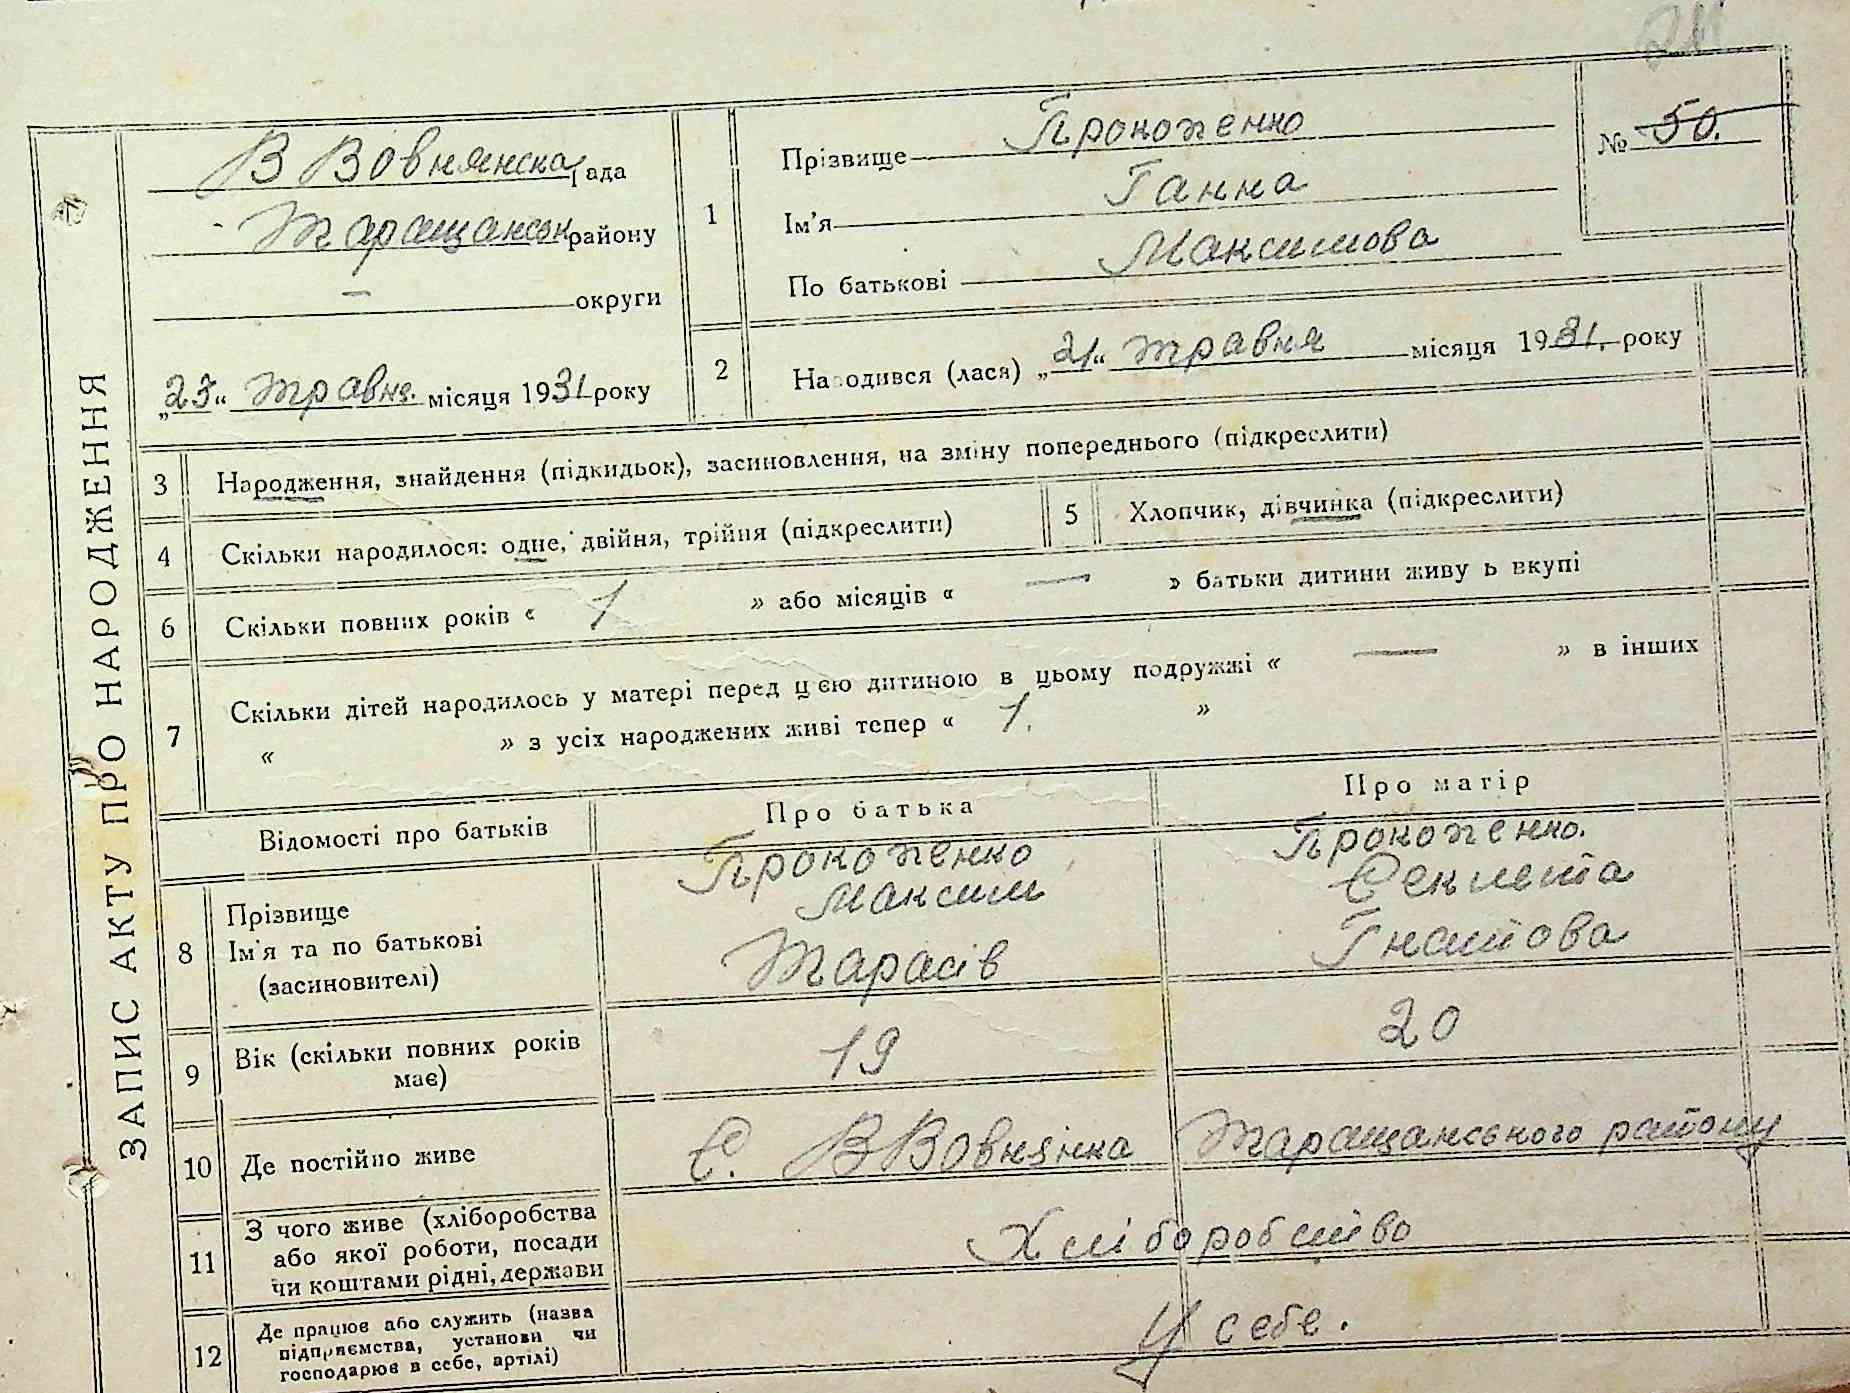 ЗАПИС АКТУ ПРО НАРОДЖЕННЯ
В Вовнянська Рада
Таращанськ району
— округи
„23“ травня. місяця 1931 року
1
Прізвище Прокопенко
Ім'я Ганна
По батькові Максимова
№ 50.
2
Народився (лася) „21“ травня місяця 1931. року
3 Народження, знайдення (підкидьок), засиновлення, на зміну попереднього (підкреслити)
4 Скільки народилося: одне, двійня, трійня (підкреслити)
5 Хлопчик, дівчинка (підкреслити)
6 Скільки повних років « 1 » або місяців « — » батьки дитини живуть вкупі
7 Скільки дітей народилось у матері перед цією дитиною в цьому подружжі « — » в інших
« » з усіх народжених живі тепер « 1. »
Відомості про батьків
Про батька
Про матір
8 Прізвище
Ім'я та по батькові
(засиновителі)
Прокопенко
Максим
Тарасів
Прокопенко.
Секлета
Гнатова
9 Вік (скільки повних років
має)
19
20
10 Де постійно живе
С. В Вовнянка Таращанського району
11 З чого живе (хліборобства
або якої роботи, посади
чи коштами рідні, держави
Хліборобство
12 Де працює або служить (назва
підприємства, установи чи
господарює в себе, артілі)
У себе.